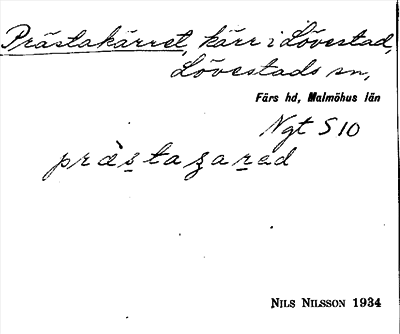 Prästakärret, kärr i Lövestad,
Lövestads sn,
Färs hd, Malmöhus län
Ngt S 10
præ̀stazarad
NILS NILSSON 1934